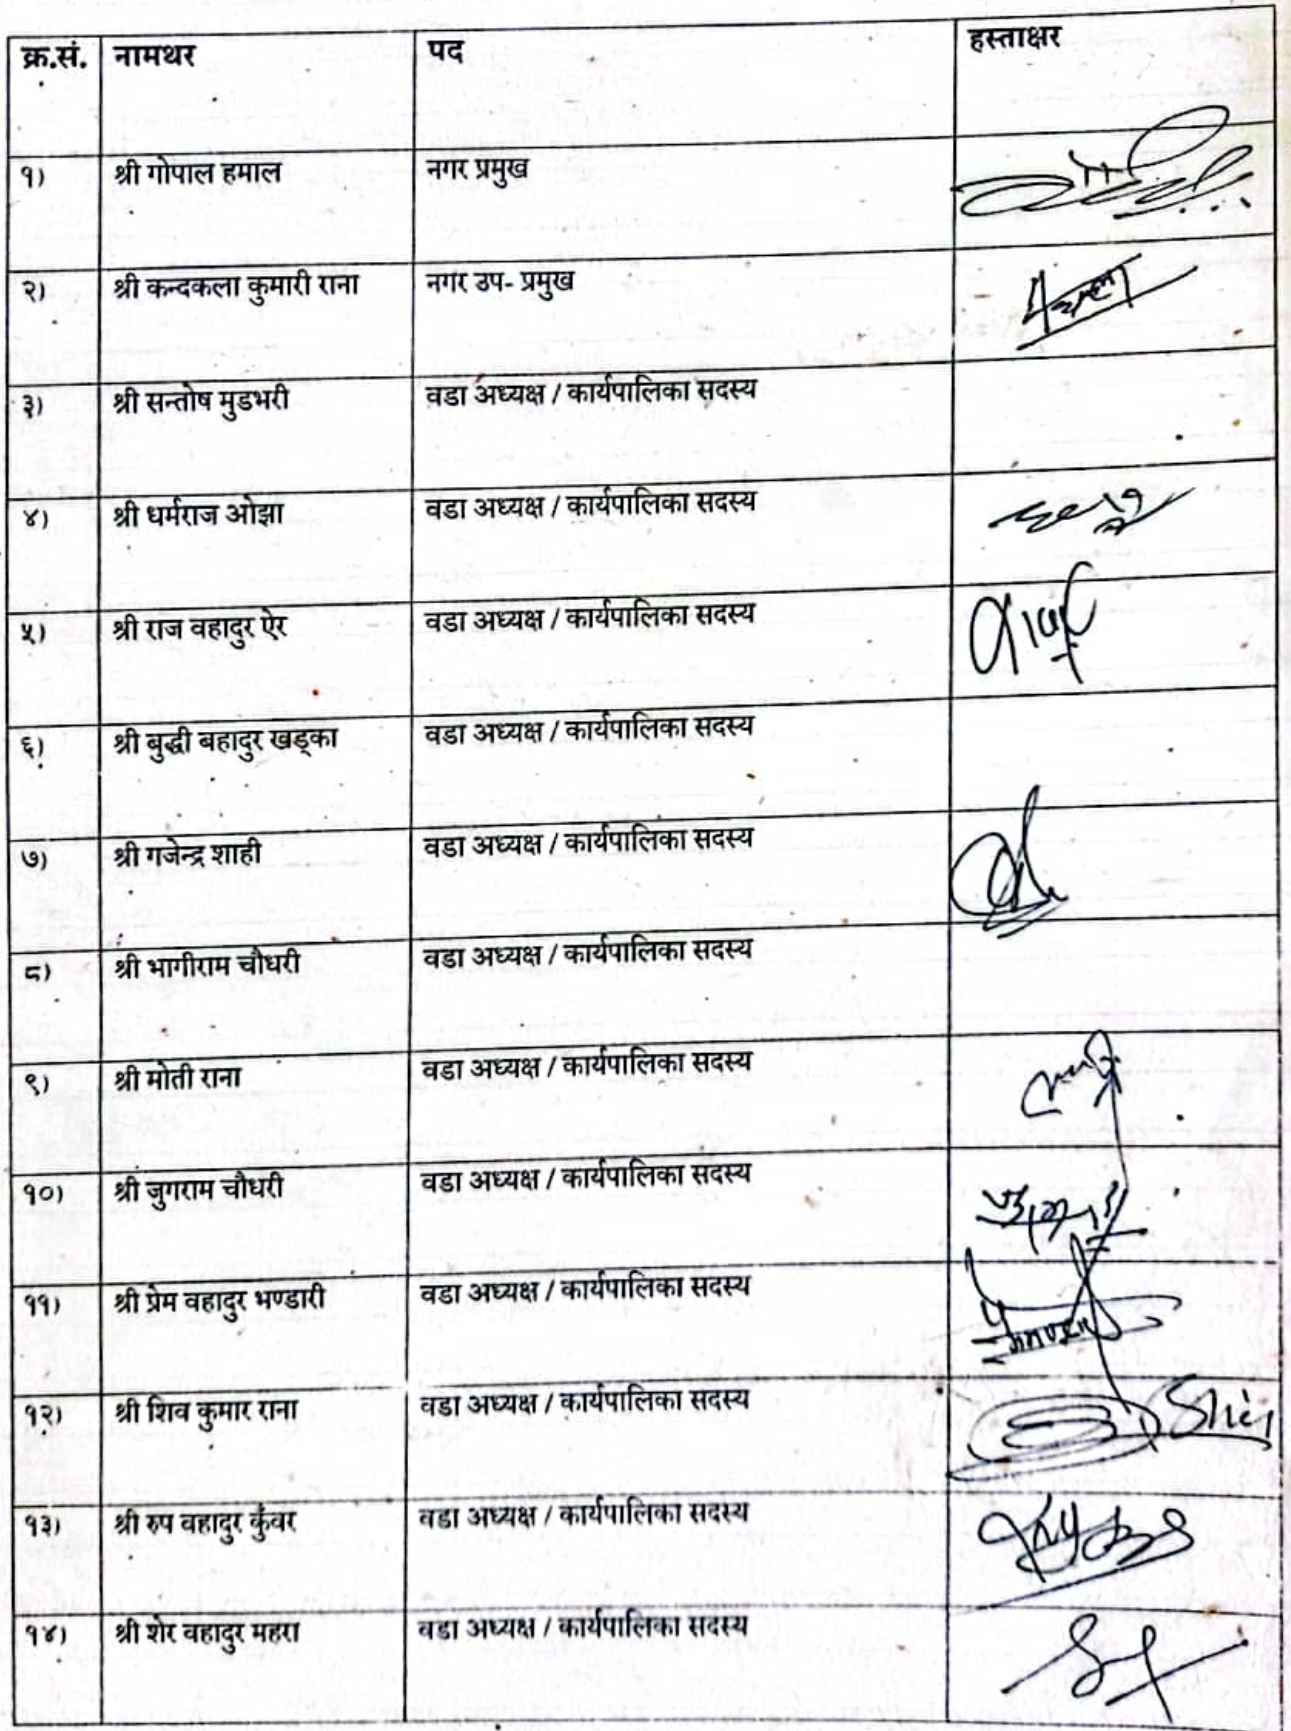 क्र.सं. नामथर पद हस्ताक्षर
१) श्री गोपाल हमाल नगर प्रमुख
२) श्री कन्दकला कुमारी राना नगर उप- प्रमुख
३) श्री सन्तोष मुडभरी वडा अध्यक्ष / कार्यपालिका सदस्य
४) श्री धर्मराज ओझा वडा अध्यक्ष / कार्यपालिका सदस्य
५) श्री राज वहादुर ऐर वडा अध्यक्ष / कार्यपालिका सदस्य
६) श्री बुद्धी बहादुर खड्का वडा अध्यक्ष / कार्यपालिका सदस्य
७) श्री गजेन्द्र शाही वडा अध्यक्ष / कार्यपालिका सदस्य
८) श्री भागीराम चौधरी वडा अध्यक्ष / कार्यपालिका सदस्य
९) श्री मोती राना वडा अध्यक्ष / कार्यपालिका सदस्य
१०) श्री जुगराम चौधरी वडा अध्यक्ष / कार्यपालिका सदस्य
११) श्री प्रेम वहादुर भण्डारी वडा अध्यक्ष / कार्यपालिका सदस्य
१२) श्री शिव कुमार राना वडा अध्यक्ष / कार्यपालिका सदस्य
१३) श्री रुप वहादुर कुंवर वडा अध्यक्ष / कार्यपालिका सदस्य
१४) श्री शेर वहादुर महरा वडा अध्यक्ष / कार्यपालिका सदस्य